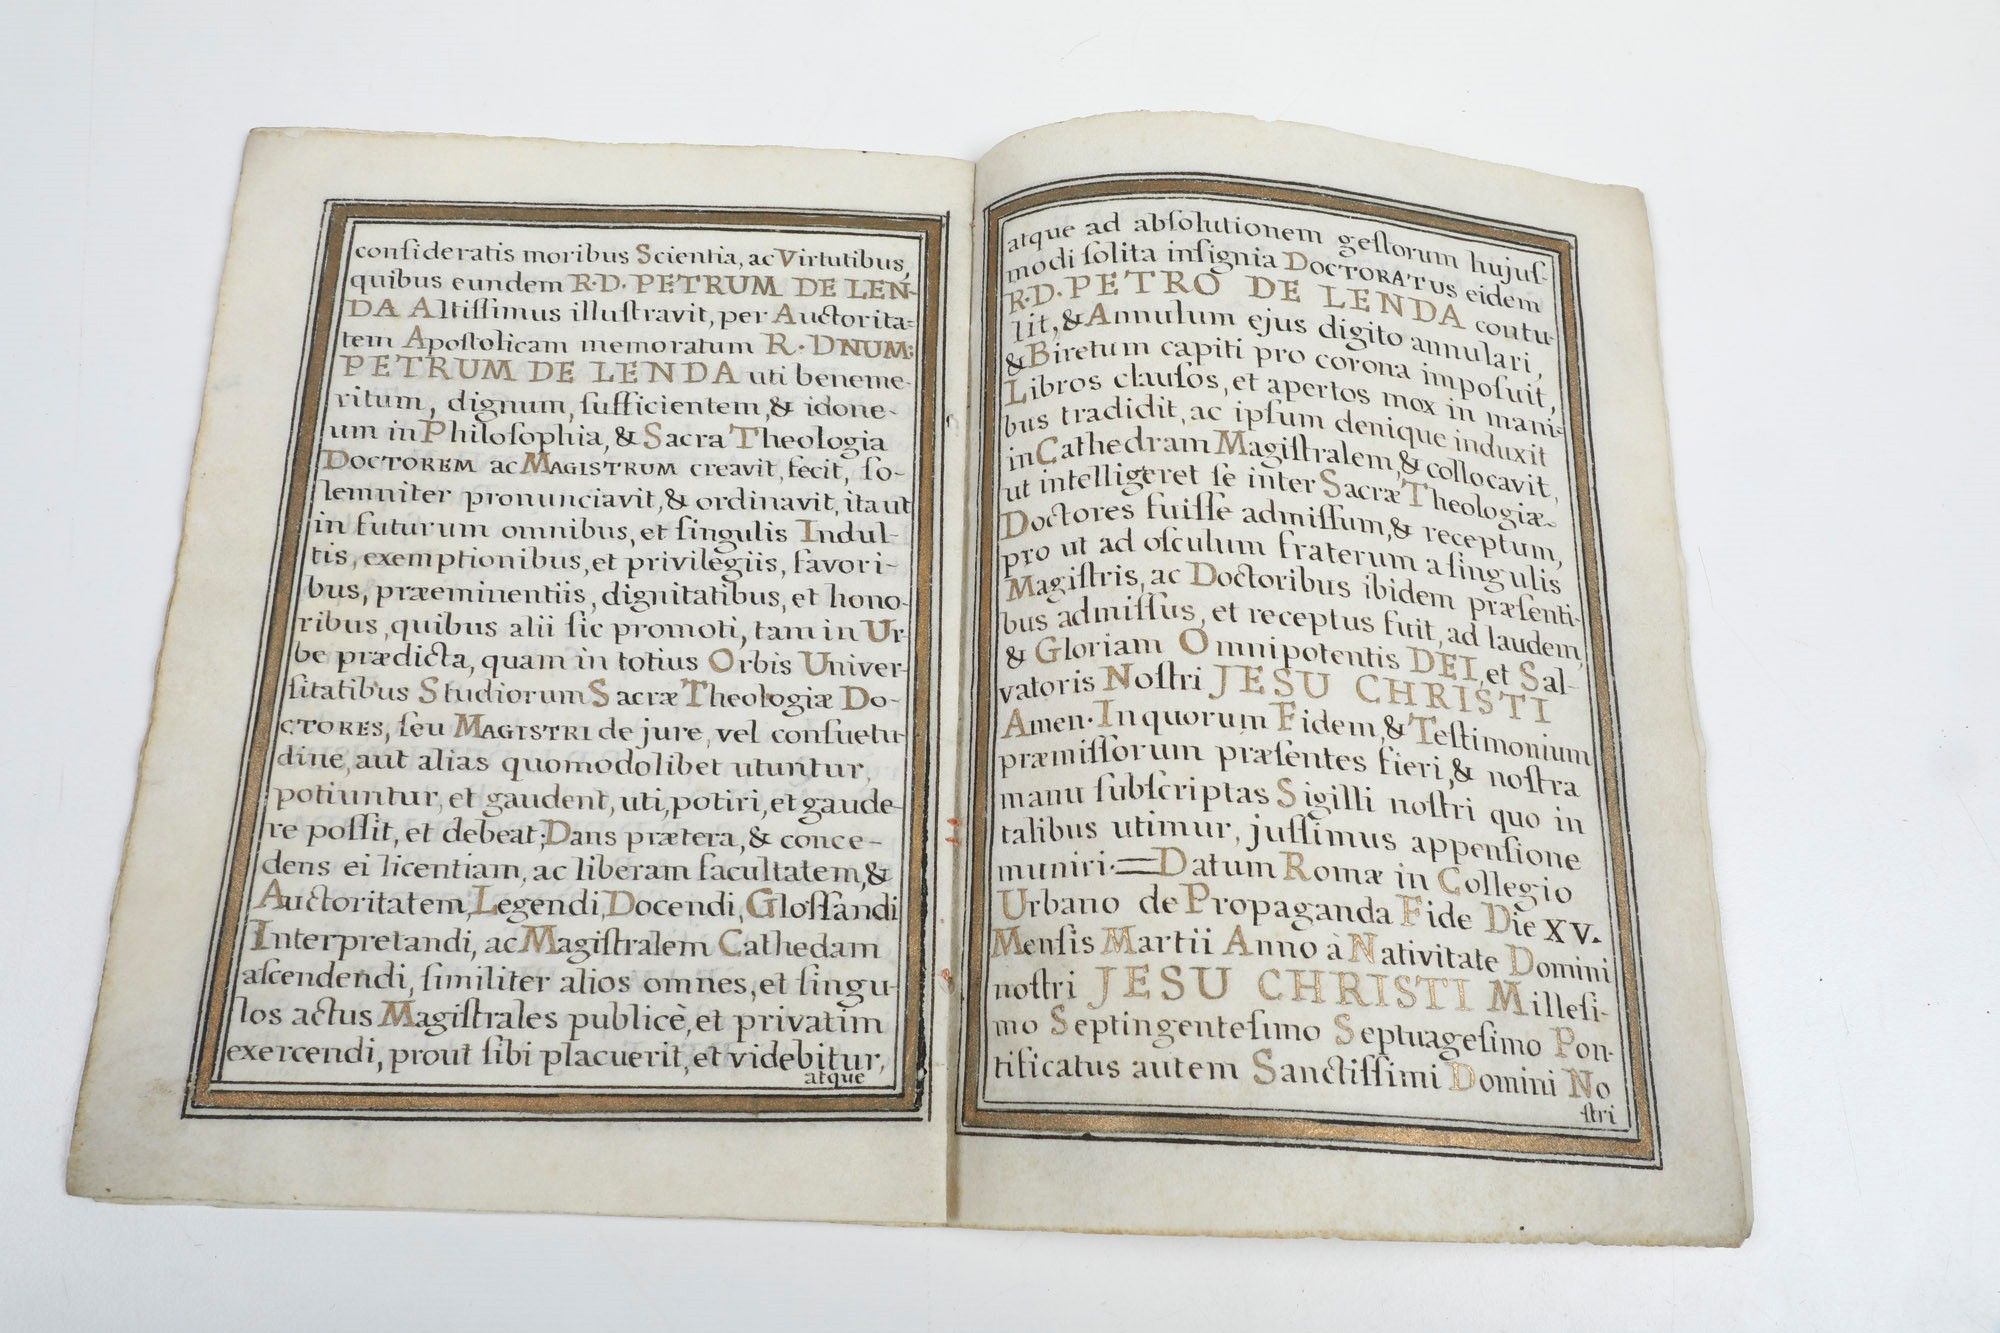 conſideratis moribus Scientia, ac Virtutibus,
quibus eundem R.D. PETRUM DE LEN-
DA Altiſſimus illuſtravit, per Auctorita=
tem Apoſtolicam memoratum R. DNUM:
PETRUM DE LENDA uti beneme-
ritum, dignum, ſufficientem, & idone-
um in Philoſophia, & Sacra Theologia
DOCTOREM ac MAGISTRUM creavit, fecit, ſo-
lemniter pronunciavit, & ordinavit, ita ut
in futurum omnibus, et ſingulis Indul-
tis, exemptionibus, et privilegiis, favori-
bus, præeminentiis, dignitatibus, et hono-
ribus, quibus alii ſic promoti, tam in Ur-
be prædicta, quam in totius Orbis Univer-
ſitatibus Studiorum Sacræ Theologiæ DO-
CTORES, ſeu MAGISTRI de jure, vel conſuetu-
dine, aut alias quomodolibet utuntur,
potiuntur, et gaudent, uti, potiri, et gaude-
re poſſit, et debeat; Dans prætera, & conce-
dens ei licentiam, ac liberam facultatem, &
Auctoritatem, Legendi, Docendi, Gloſſandi
Interpretandi, ac Magiſtralem Cathedam
aſcendendi, ſimiliter alios omnes, et ſingu-
los actus Magiſtrales publicè, et privatim
exercendi, prout ſibi placuerit, et videbitur,
atque
atque ad abſolutionem geſtorum hujuſ-
modi ſolita inſignia DOCTORATUS eidem
R.D. PETRO DE LENDA contu-
lit, & Annulum ejus digito annulari,
& Biretum capiti pro corona impoſuit,
Libros clauſos, et apertos mox in mani-
bus tradidit, ac ipſum denique induxit
in Cathedram Magiſtralem, & collocavit,
ut intelligeret ſe inter Sacræ Theologiæ
Doctores fuiſſe admiſſum, & receptum,
pro ut ad oſculum fraterum a ſingulis
Magiſtris, ac Doctoribus ibidem præſenti-
bus admiſſus, et receptus fuit, ad laudem,
& Gloriam Omnipotentis DEI, et Sal-
vatoris Noſtri JESU CHRISTI
Amen. In quorum Fidem, & Teſtimonium
præmiſſorum præſentes fieri, & noſtra
manu ſubſcriptas Sigilli noſtri quo in
talibus utimur, juſſimus appenſione
muniri. = Datum Romæ in Collegio
Urbano de Propaganda Fide Die XV.
Menſis Martii Anno à Nativitate Domini
noſtri JESU CHRISTI Milleſi-
mo Septingenteſimo Septuageſimo Pon-
tificatus autem Sanctiſſimi Domini No
ſtri